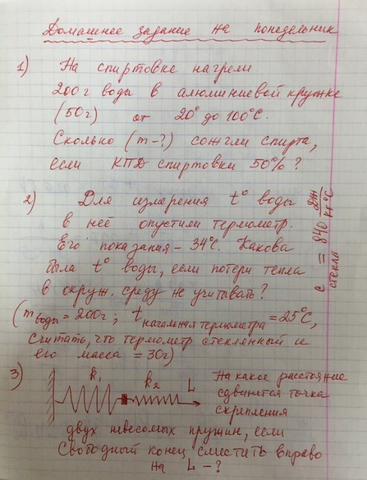 Домашнее задание на понедельник
1) На спиртовке нагрели
200г воды в алюминиевой кружке
(50г) от 20° до 100°C.
Сколько (m-?) сожгли спирта,
если КПД спиртовки 50%?
2) Для измерения t° воды
в неё опустили термометр.
Его показания - 34°C. Какова
была t° воды, если потери тепла
в окруж. среду не учитывать?
(m воды = 200г; t начальная термометра = 25°C,
считать, что термометр стеклянный и
его масса = 30г)
c стекла = 840 Дж/кг°C
3) k₁ k₂ L На какое расстояние
сдвинется точка
скрепления
двух невесомых пружин, если
свободный конец сместить вправо
на L-?